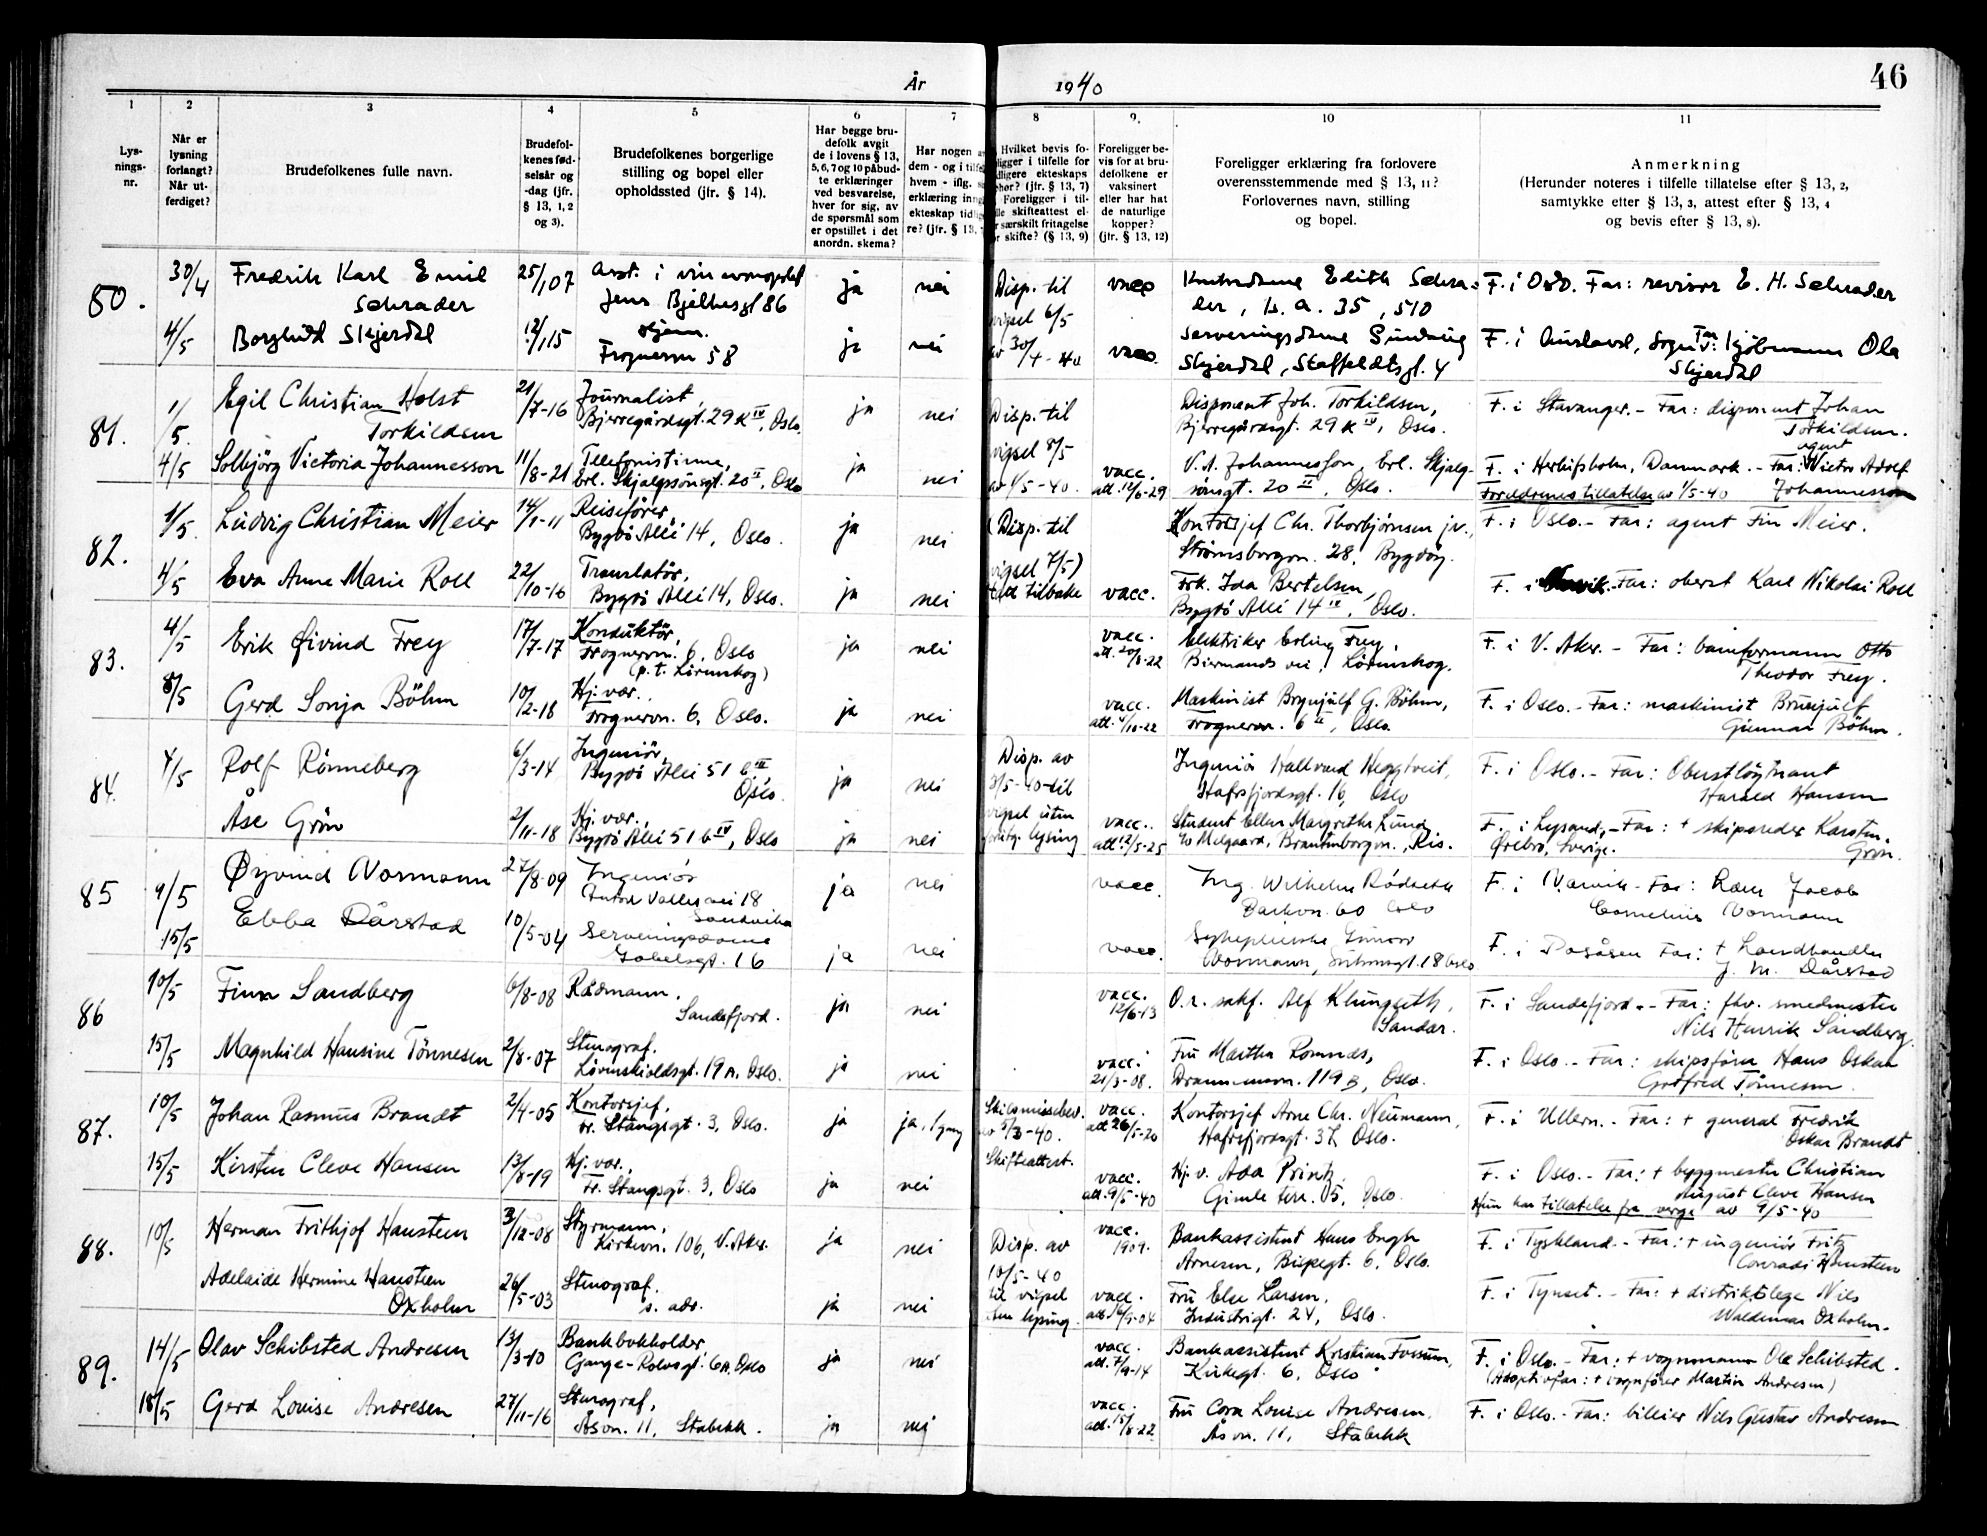 År 1940
46
1
2
3
4
5
6
7
8
9.
10
11
Lys-
nings-
nr.
Når er
lysning
forlangt?
Når ut-
ferdiget?
Brudefolkenes fulle navn.
Brudefol-
kenes fød-
selsår og
-dag (jfr.
§ 13, 1, 2
og 3).
Brudefolkenes borgerlige
stilling og bopel eller
opholdssted (jfr. § 14).
Har begge bru-
defolk avgit
de i lovens § 13,
5, 6, 7 og 10 påbud-
te erklæringer
ved besvarelse,
hver for sig, av
de spørsmål som
er opstillet i det
anordn. skema?
Har nogen
dem - og i
hvem - iflg.
erklæring
ekteskap
re? (jfr. § 13,
Hvilket bevis fo-
ligger i tilfelle for
dligere ekteskaps
hør? (jfr. § 13, 7)
Foreligger i til-
lle skifteattest el-
r særskilt fritagelse
r skifte? (§ 13, 9)
Foreligger be-
vis for at bru-
defolkene er
vaksinert
eller har hat
de naturlige
kopper?
(jfr. § 13, 12)
Foreligger erklæring fra forlovere
overensstemmende med § 13, 11?
Forlovernes navn, stilling
og bopel.
Anmerkning
(Herunder noteres i tilfelle tillatelse efter § 13, 2,
samtykke efter § 13, 3, attest efter § 13, 4
og bevis efter § 13, 8).
80. 30/4 Fredrik Karl Emil 25/1 07 ja nei Disp. til vacc Edith Schra- F. i Oslo. Far: revisor E. H. Schrader
Schrader Jens Bjelkesgt 86 vigsel 6/5 der, 35, 510
4/5 Borghild Skjerdal 12/1 15 ja nei av 30/4-40 vacc. Serveringsdame F. i Aurland, Sogn. Far: Ola
Frognervn 58 Skjerdal, Staffeldtsgt. 4 Skjerdal
81. 1/5. Egil Christian Holst 21/7-16 Journalist, ja nei Disp. til Disponent Joh. Torkildsen, F. i Stavanger. - Far: disponent Johan
Torkildsen Bjerregårdsgt. 29 K IV, Oslo. vigsel 8/5 Bjerregårdsgt. 29 K IV, Oslo. Torkildsen.
4/5 Solbjörg Victoria Johannesson 11/8-21 Telefonistinne, ja nei av 1/5-40. vacc. V. A. Johannesson, Erl. Skjalg- F. i Herlufsholm, Danmark. - Far: agent Victor Adolf
Erl. Skjalgssönsgt. 20 II, Oslo att. 12/6-29 sönsgt. 20 II, Oslo. Foreldrenes tillatelse av 1/5-40 Johannesson
82. 1/5. Ludvig Christian Meier 14/1-11 Reisefører, ja nei (Disp. til Kontorsjef Chr. Thorbjørnsen jr., F. i Oslo. - Far: agent Fin Meier.
Bygdö Allé 14, Oslo. vigsel 7/5) Strømsborgvn. 28, Bygdöy.
4/5 Eva Anne Marie Roll 22/10-16 Translatør, ja nei tilbake vacc. Frk. Ida Bertelsen, F. i Far: oberst Karl Nikolai Roll
Bygdö Allé 14, Oslo. Bygdö Allé 14 IV, Oslo.
83. 4/5 Erik Øivind Frey 17/7-17 Konduktör, ja nei vacc. Elektriker Erling Frey, F. i V. Aker. - Far: baneformann Otto
Frognervn. 6, Oslo att. 20/8-22 Biermanns vei, Lörenskog. Theodor Frey.
(p. t. Lörenskog)
8/5 Gerd Sonja Böhm 10/2-18 Hj. vær. ja nei vacc. Maskinist Brynjulf G. Böhm, F. i Oslo. - Far: maskinist Brynjulf
Frognervn. 6, Oslo. att. 4/10-22 Frognervn. 6 II, Oslo. Gunnar Böhm.
84. 7/5 Rolf Rönneberg 6/3-14 Ingeniör, ja nei Disp. av Ingeniör Hallvard Heggtveit, F. i Oslo. - Far: Oberstløytnant
Bygdö Allé 51 b IV, Oslo. 3/5-40 til Hafrsfjordsgt. 16, Oslo Harald Hansen
Åse Grön 2/11-18 Hj. vær., ja nei vigsel uten vacc. Student Ellen Margrethe Lund F. i Lysand, - Far: + skipsreder Karsten
Bygdö Allé 51 b IV, Oslo lysing att. 12/5-25 Melgaard, Brantenborgvn., Ris. Örebro, Sverige. Grön.
85 9/5 Øyvind Normann 27/8-09 Ingeniör ja nei vacc. Ing. Wilhelm Rödseth F. i Narvik - Far: Jacob
Anton Walles vei 18 Sandvika Parkvn. 60 Oslo Cornelius Normann
15/5 Ebba Dårstad 10/5-04 Serveringsdame ja nei vacc. Sykepleierske Normann, 18 Oslo F. i Far: + Landhandler
Gabelsgt. 16 J. M. Dårstad
86 10/5 Finn Sandberg 6/8-08 Rådmann. ja nei vacc. O. r. sakf. Alf Klingseth, F. i Sandefjord. - Far: fhv. smedmester
Sandefjord. 12/6-13 Sandar. Nils Henrik Sandberg.
15/5 Magnhild Hansine Tönnesen 2/8-07 Stenograf. ja nei vacc. Fru Martha Romnæs, F. i Oslo. - Far: skipsfører Hans Oskar
Lövenskioldsgt. 19 A, Oslo. 21/3-08. Drammensvn. 119 B, Oslo. Gotfred Tönnesen.
87. 10/5 Johan Rasmus Brandt 2/4-05 Kontorsjef. ja ja, 1 gang Skilsmissebev. vacc. Kontorsjef Arne Chr. Neumann, F. i Ullern. - Far: + general Fredrik
Fr. Stangsgt. 3, Oslo. av 5/3-40. att. 26/5-20 Hafrsfjordsgt. 37, Oslo. Oskar Brandt
15/5 Kirsten Cleve Hansen 13/8-19 Hj. vær., ja nei Skifteattest. vacc. Hj. v. Ada Printz, F. i Oslo. - Far: + byggmester Christian
Fr. Stangsgt. 3, Oslo att. 9/5-40 Gimle terr. 5, Oslo. August Cleve Hansen
Hun har tillatelse fra verge av 9/5-40
88. 10/5 Herman Frithjof Hansteen 3/12-08 Styrmann, ja nei Disp. av vacc. Bankassistent Hans Engh F. i Tyskland. - Far: + ingeniör Fritz
Kirkevn. 106, V. Aker. 10/5-40 1909. Arnesen, Bispegt. 6, Oslo. Conradi Hansteen
Adelaide Hermine Hansteen 26/5-03 Stenograf. ja nei til vigsel vacc. Fru Else Larsen, F. i Tynset. - Far: + distriktslege Nils
Oxholm s. adr. uten lysing. att. 16/9-04 Industrigt. 24, Oslo. Waldemar Oxholm.
89. 14/5 Olav Schibsted Andresen 13/3-10 Bankbokholder, ja nei vacc. Bankassistent Kristian Fossum, F. i Oslo. - Far: + vognmann Ole Schibsted.
Gange-Rolvsgt. 6 A, Oslo att. 7/9-14 Kirkegt. 6, Oslo (Adoptivfar: + vognfører Martin Andresen)
18/5 Gerd Louise Andresen 27/11-16 Stenograf, ja nei vacc. Fru Cora Louise Andresen. F. i Oslo. - Far: billier Nils Gustav Andresen
Åsvn. 11, Stabekk. att. 15/8-22. Åsvn. 11, Stabekk